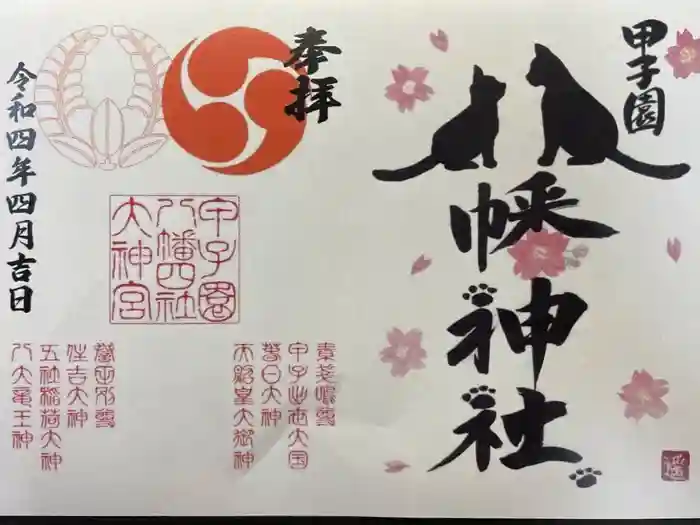 甲子園
幡神社
奉拝
甲子園
八幡四社
大神宮
素戔嗚尊
甲子出世大国
春日大神
天照皇大御神
誉田別尊
住吉大神
五社稲荷大神
八大竜王神
令和四年四月吉日